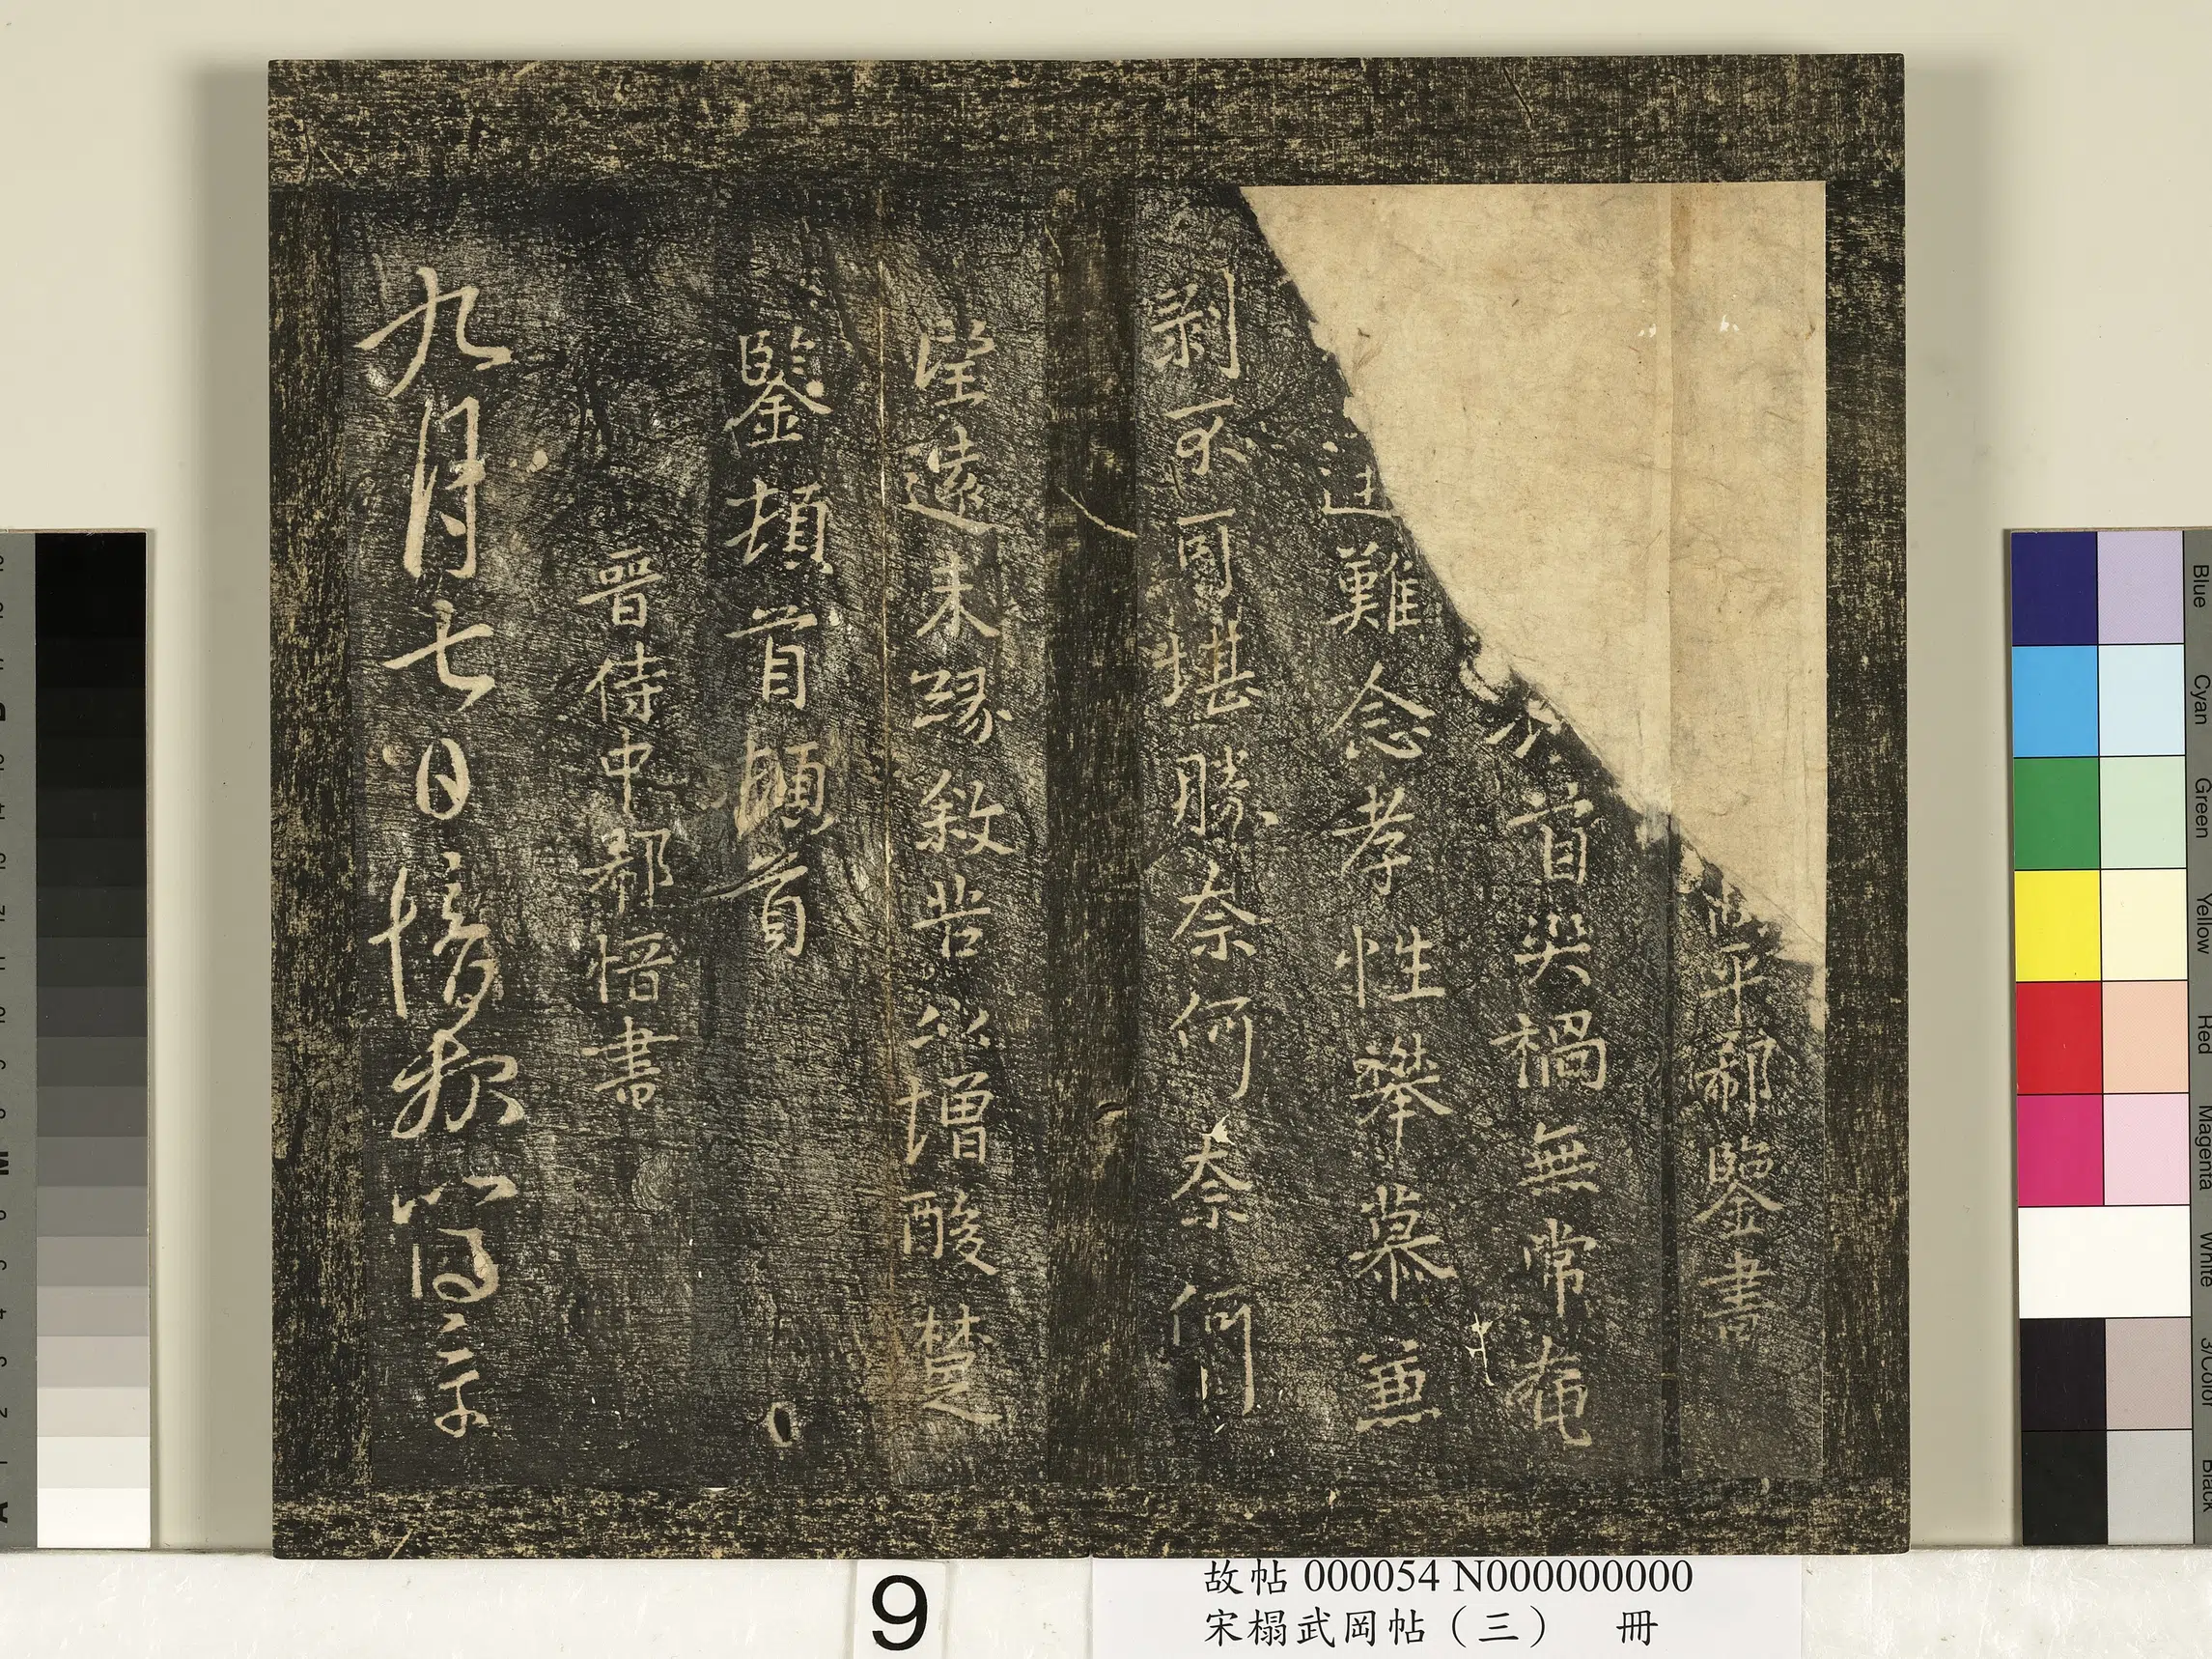 平郗鑒書
首災禍無常奄
難念孝性攀慕兼
剝不可堪勝奈何奈何
望遠未緣敘苦以增酸楚
鑒頓首頓首
晉侍中郗愔書
九月七日愔報比得示
9
故帖 000054 N000000000
宋榻武岡帖（三） 冊
Blue
Cyan
Green
Yellow
Red
Magenta
White
3/Color
Black